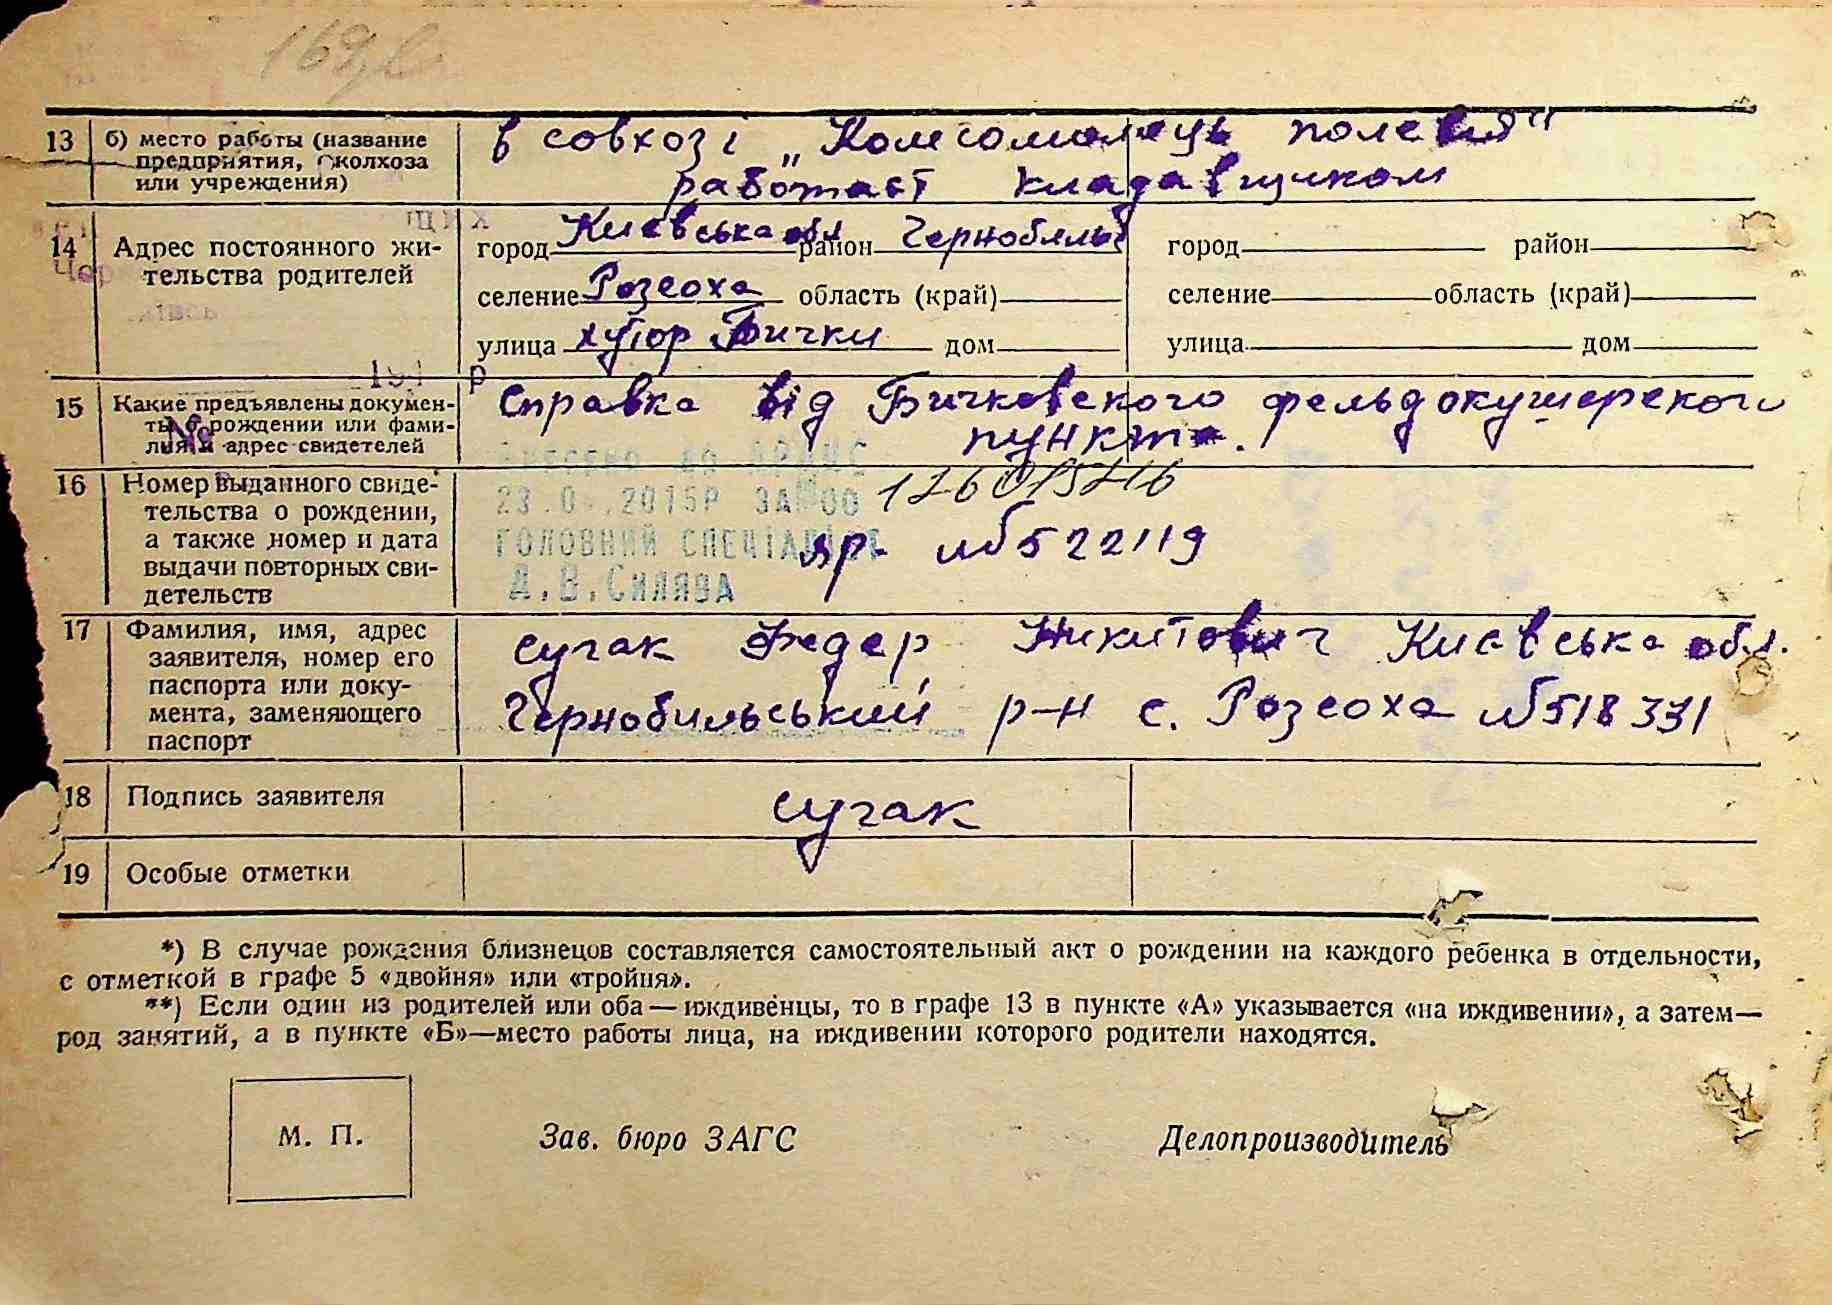 13 б) место работы (название предприятия, колхоза или учреждения)
в совхозі „Комсомолець полесья"
работает кладавщиком
14 Адрес постоянного жительства родителей
город Києвська обл район Чернобильс
город район
селение Розсоха область (край)
селение область (край)
улица хутор Бички дом
улица дом
15 Какие предъявлены документы о рождении или фамилия и адрес свидетелей
Справка від Бичковского фельдокушерского
пункта.
16 Номер выданного свидетельства о рождении, а также номер и дата выдачи повторных свидетельств
ВНЕСЕНО ДО ДРАЦС
2015Р ЗА №00
ГОЛОВНИЙ СПЕЦІАЛІСТ
Д.В.Силява
яр- №522119
17 Фамилия, имя, адрес заявителя, номер его паспорта или документа, заменяющего паспорт
Сугак Федер Никитович Києвська обл.
Чернобильський р-н с. Розсоха №518331
18 Подпись заявителя
Сугак
19 Особые отметки
*) В случае рождения близнецов составляется самостоятельный акт о рождении на каждого ребенка в отдельности,
с отметкой в графе 5 «двойня» или «тройня».
**) Если один из родителей или оба—иждивенцы, то в графе 13 в пункте «А» указывается «на иждивении», а затем—
род занятий, а в пункте «Б»—место работы лица, на иждивении которого родители находятся.
М. П.
Зав. бюро ЗАГС
Делопроизводитель